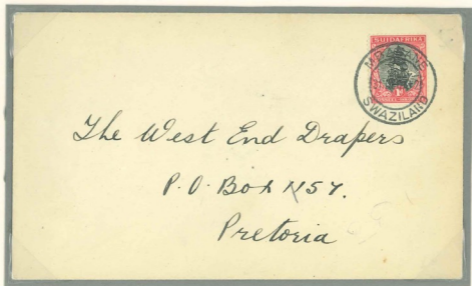 SUIDAFRIKA
SWAZILAND
1D
The West End Drapers
P.O. Box 1157.
Pretoria